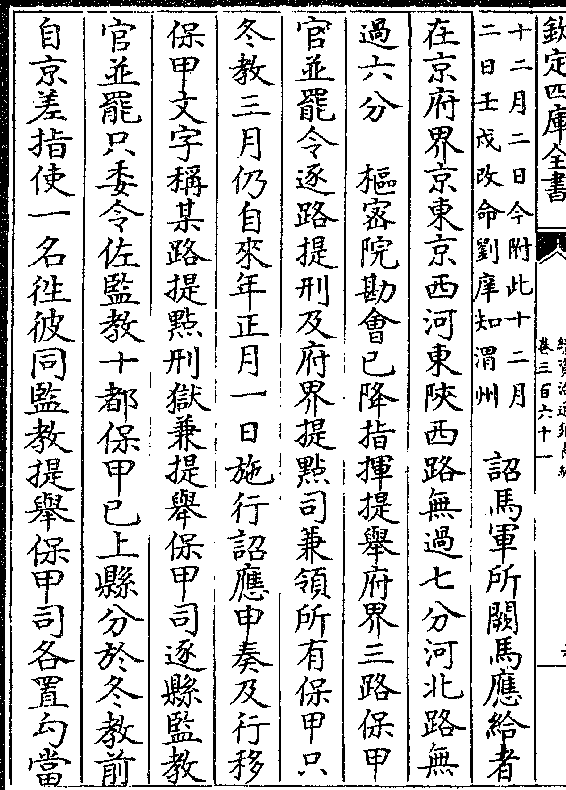 欽定四庫全書
續資治通鑑長編
卷三百六十一
十二月二日今附此十二月
二日壬戌改命劉庠知渭州
詔馬軍所闕馬應給者
在京府界京東京西河東陜西路無過七分河北路無
過六分　樞宻院勘會已降指揮提舉府界三路保甲
官並罷令逐路提刑及府界提㸃司兼領所有保甲只
冬教三月仍自來年正月一日施行詔應申奏及行移
保甲文字稱某路提㸃刑獄兼提舉保甲司逐縣監教
官並罷只委令佐監教十都保甲已上縣分於冬教前
自京差指使一名徃彼同監教提舉保甲司各置勾當